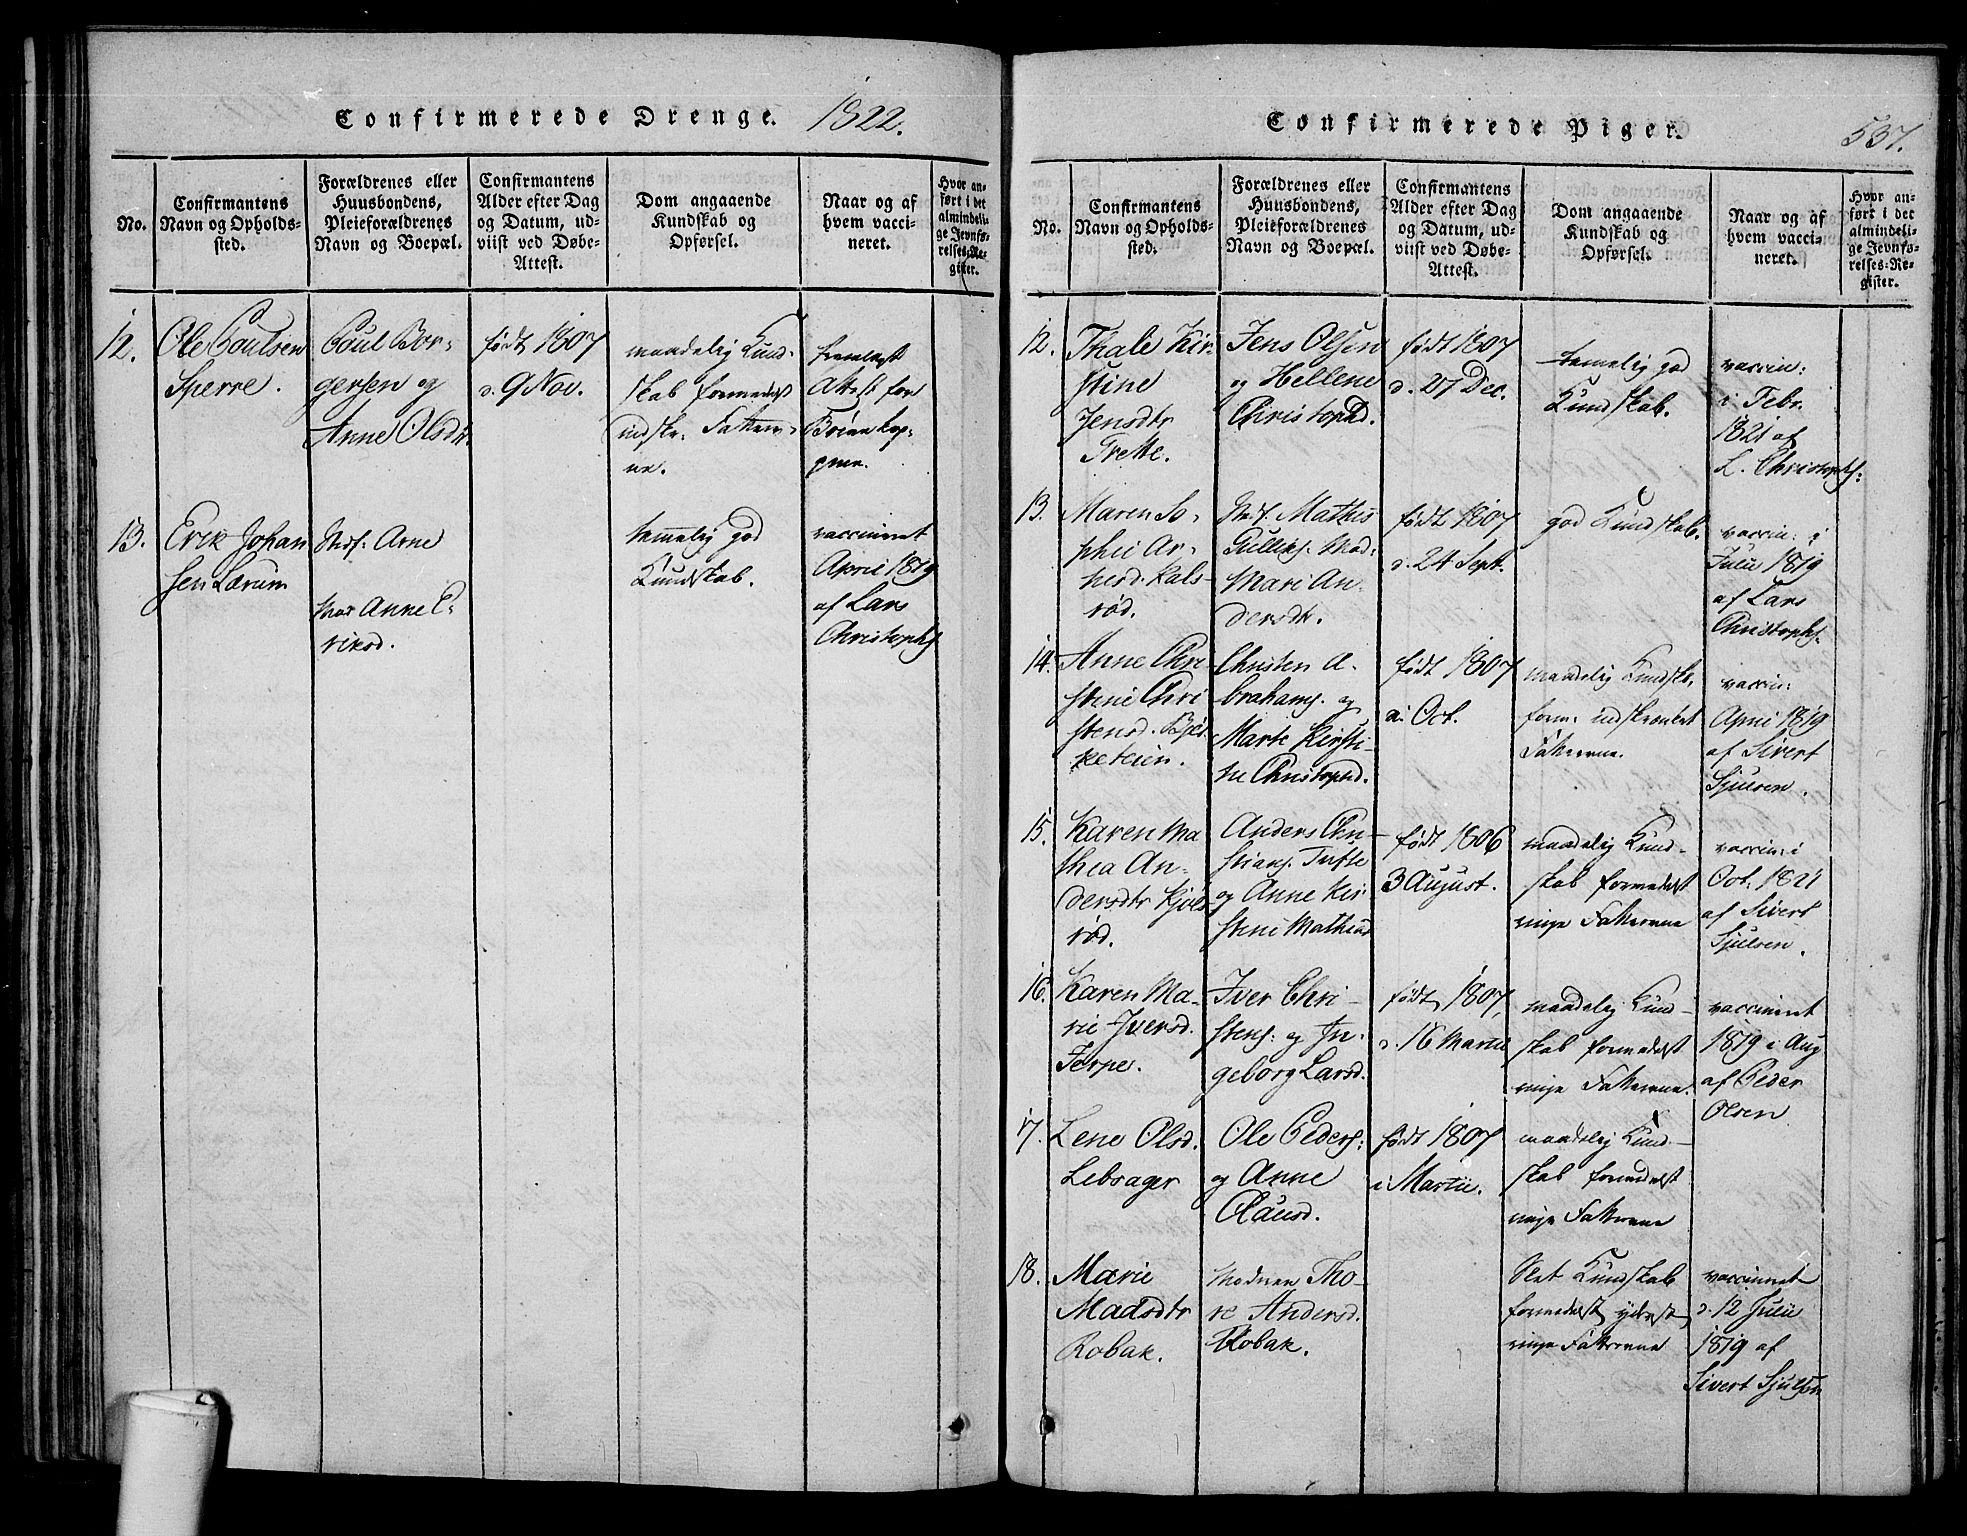 Confirmerede Drenge. 1822.
No.
Confirmantens
Navn og Opholds-
sted.
Forældrenes eller
Huusbondens,
Pleieforældrenes
Navn og Boepæl.
Confirmantens
Alder efter Dag
og Datum, ud-
viist ved Døbe-
Attest.
Dom angaaende
Kundskab og
Opførsel.
Naar og af
hvem vacci-
neret.
Hvor an-
ført i det
almindeli-
ge Jevnfø-
relses-Re-
gister.
12.
Ole Poulsen
Sperre.
Poul Bor-
gersen og
Anne Olsdtr.
født 1807
d. 9 Nov.
maadelig Kund-
skab formedelst
indskr. Fatteev-
ne.
fremlagt
Attest for
13.
Erik Johan
sen Lærum
Arne
Mor Anne E-
riksd.
temmelig god
Kundskab.
vaccineret
April 1819
af Lars
Christophs.
Confirmerede Piger.
537.
No.
Confirmantens
Navn og Opholds-
sted.
Forældrenes eller
Huusbondens,
Pleieforældrenes
Navn og Boepæl.
Confirmantens
Alder efter Dag
og Datum, ud-
viist ved Døbe-
Attest.
Dom angaaende
Kundskab og
Opførsel.
Naar og af
hvem vacci-
neret.
Hvor an-
ført i det
almindeli-
ge Jevnfø-
relses-Re-
gister.
12.
Thale Kir-
stine
Jensdtr
Trette.
Jens Olsen
og Hellene
Christophd.
født 1807
d. 27 Dec.
temelig god
Kundskab.
vaccin:
i Febr.
1821 af
L. Christophs:
13.
Maren So-
phie An-
Kals-
rød.
Mathis
Gulliks.
Mari An-
dersdtr.
født 1807
d. 24 Sept.
god Kundskab.
vaccin: i
Julii 1819
af Lars
Christophs.
14.
Anne Chri-
stine Chri
stensd.
Christen A-
brahams. og
Marte Kirsti-
ne Christophd.
født 1807
i Oct.
maadelig Kundsk.
form. indskrænket
Fatteevne.
vaccin:
April 1819
af Sivert
Sjulsen.
15.
Karen Ma
thea An-
dersdtr Kjøls
rød.
Anders Chri-
stians. Tufte
og Anne Kir-
stine Mathisd
født 1806
3 August.
maadelig Kund-
skab formedelst
ringe Fatteevne
vaccin: i
Oct. 1821
af Sivert
Sjulsen.
16.
Karen Ma-
rie Iversd.
Jerpe.
Iver Chri-
stens: og In-
geborg Larsd.
født 1807,
d. 16 Martii
maadelig Kund-
skab formedelst
ringe Fatteevne.
vaccineret
1819 i Aug
af Peder
Olsen
17.
Lene Olsd.
Lebsager
Ole Peders:
og Anne
Clausd.
født 1807
i Martii.
maadelig Kund-
skab formedelst
ringe Fatteevne
18.
Marie
Madsdtr
Robak.
Moderen Tho-
re Andersd.
Robak.
Slet Kundskab
formedelst yderst
ringe Fatteevne
vaccineret
d. 12 Julii
1819 af
Sivert Sjulsen